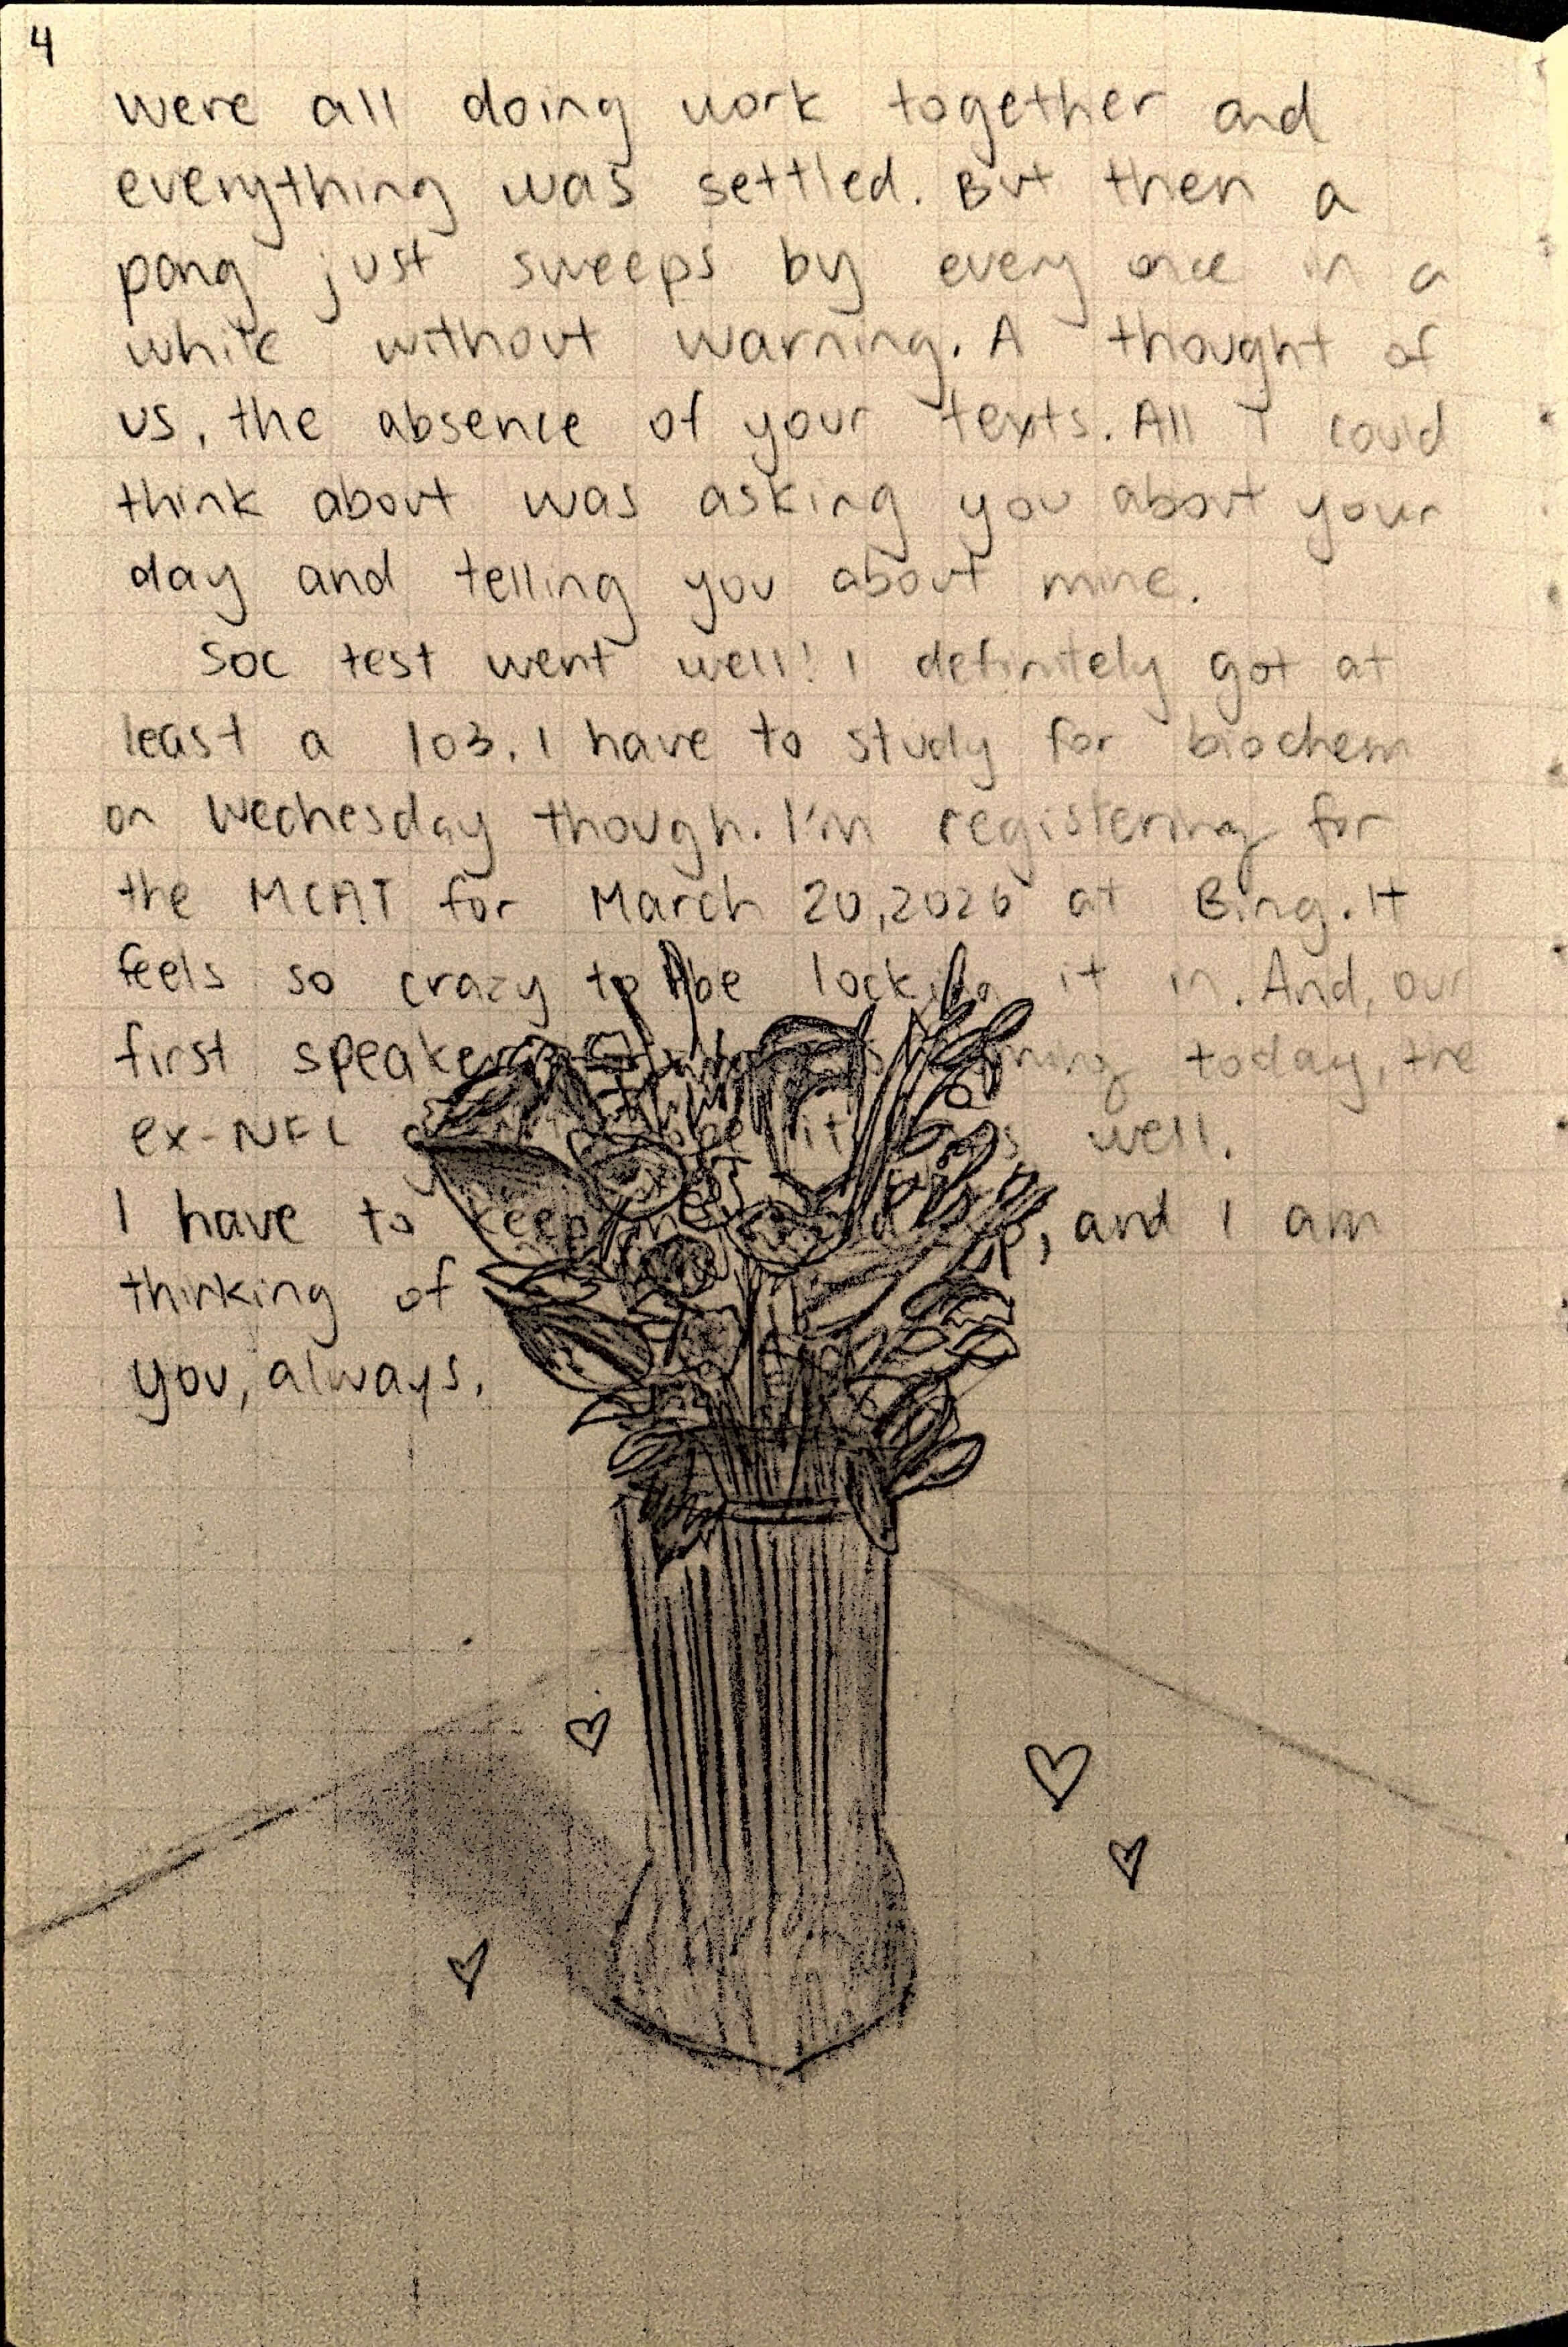 4
were all doing work together and
everything was settled. But then a
pang just sweeps by every once in a
while without warning. A thought of
us, the absence of your texts. All I could
think about was asking you about your
day and telling you about mine.
Soc test went well! I definitely got at
least a 103. I have to study for biochem
on Wednesday though. I'm registering for
the MCAT for March 20, 2026 at Bing. It
feels so crazy to be locking it in. And, our
first speaker coming today, the
ex-NFL hope it goes well.
I have to keep my up, and I am
thinking of
you, always.